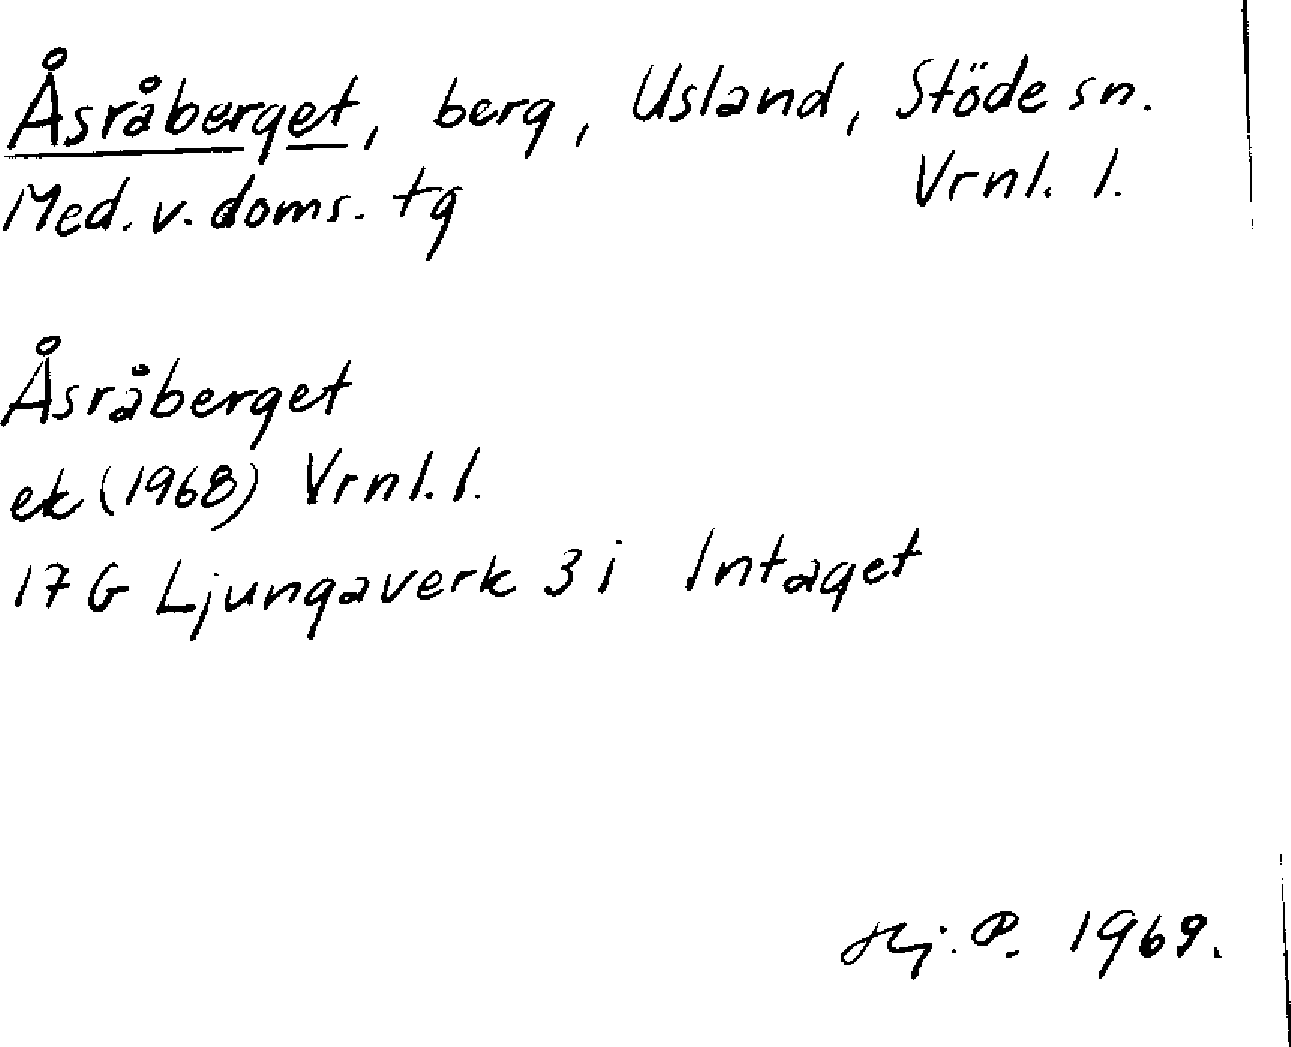 Åsråberget, berg, Usland, Stöde sn.
Med. v. doms. tg Vrnl. l.
Åsråberget
ek (1968) Vrnl. l.
17 G Ljungaverk 3 i Intaget
Hj. P. 1969.